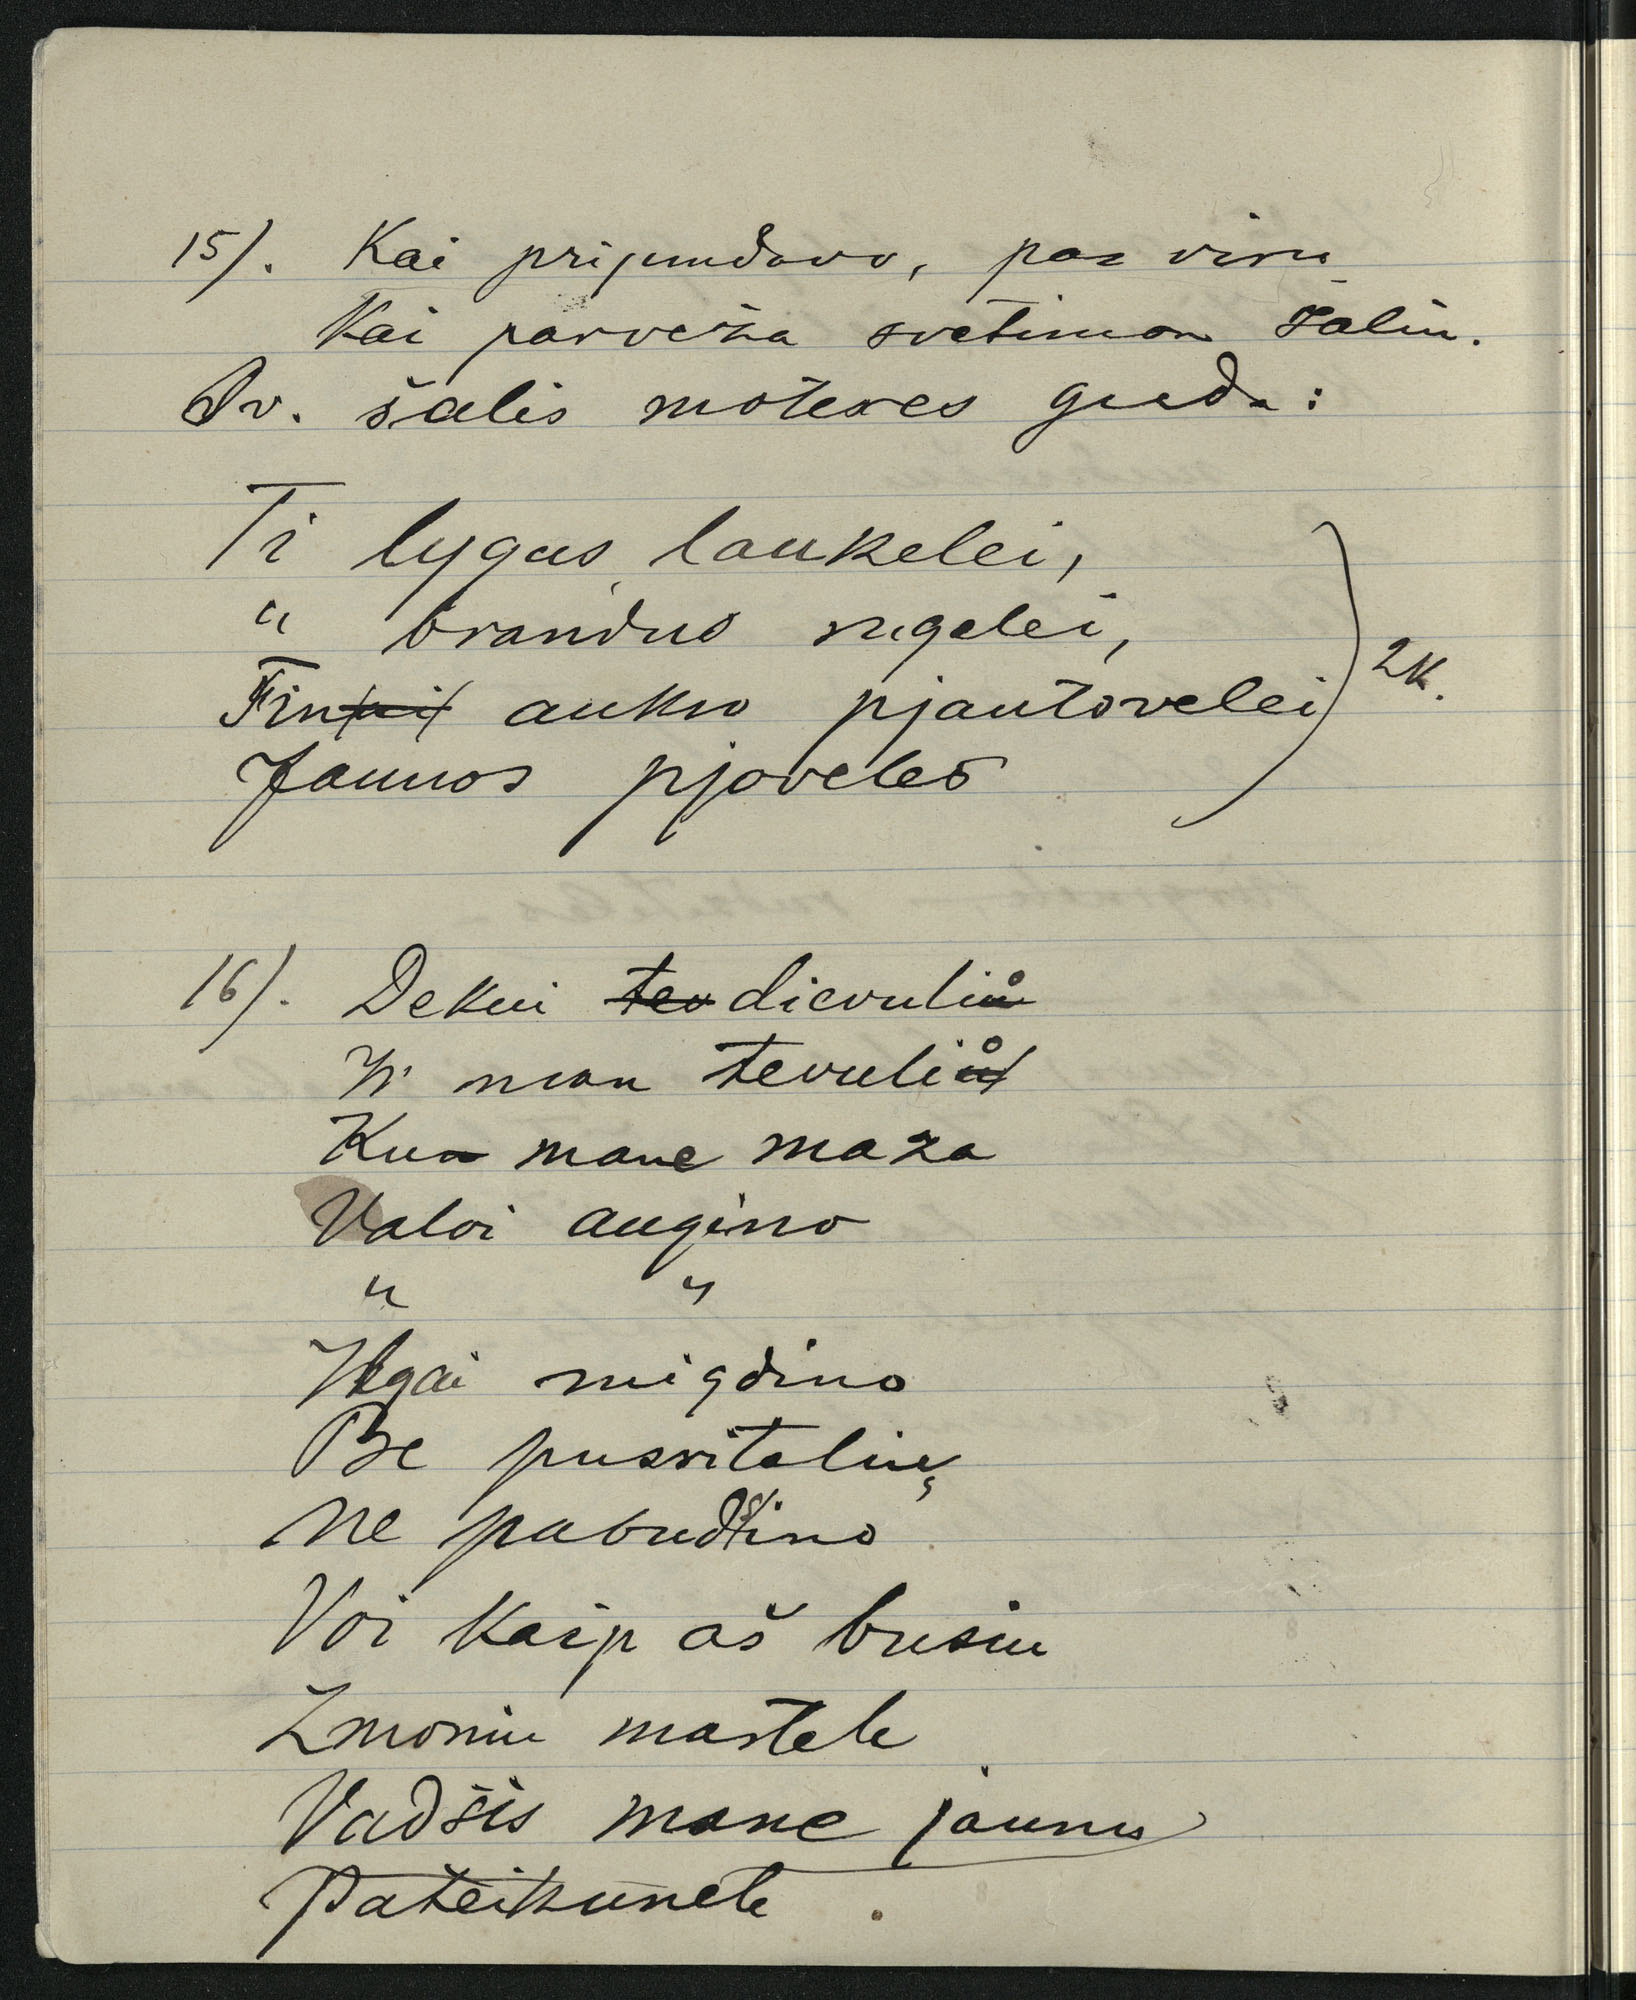 15). Kai prijimdavo, par viru
Kai parveža svetimon šalin.
Sv. šalis moteres gieda:
Ti lygus laukelei,
" brandus rugelei,
Tin aukso pjautovelei
Jaunos pjoveles
2k.
16). Dekui tev dievuliu
Ir man tevuliů
Kur mane maža
Valoi augino
" "
Ilgai migdino
Be pusritelių
Ne pabudino
Voi kaip aš busiu
Zmoniu martele
Vadšis mane jaunu
Pateikunele